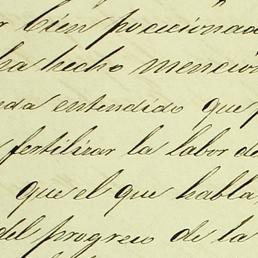 bien posicionad
ha hecho mención
nda entendido que p
fertilizar la labor de
que el que habla,
del progreso de la